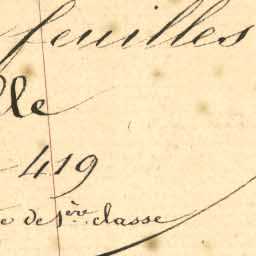 feuilles
lle
419
e de 1ère classe